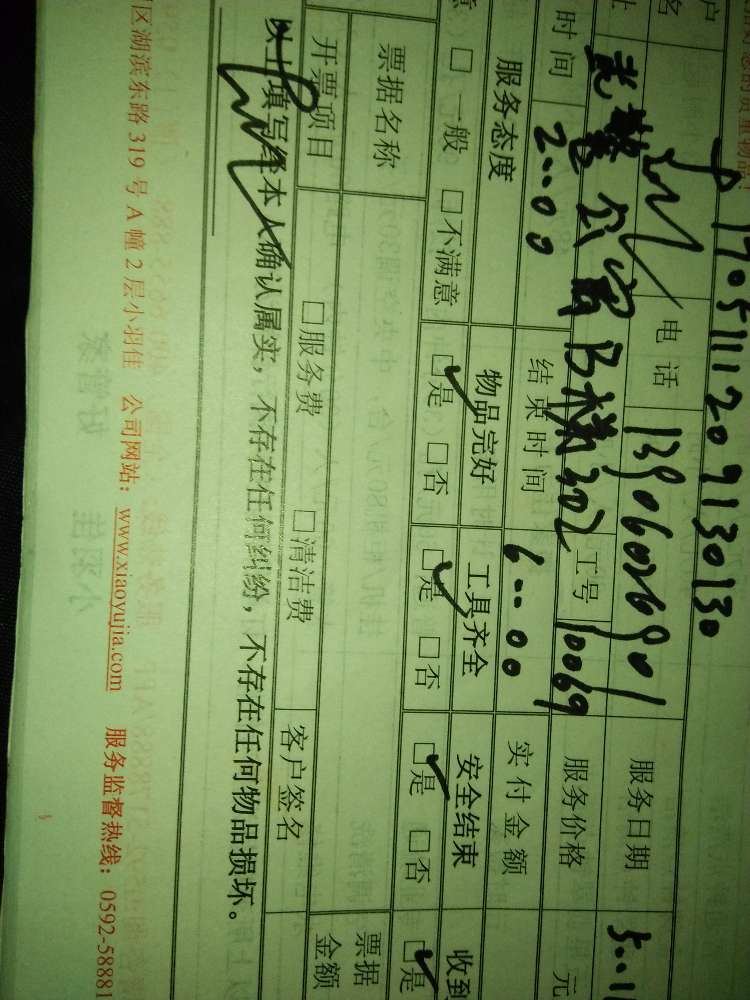 1705111209130130
名 电话 13906026901 服务日期 5.11
址 武警公寓B栋302 工号 10069 服务价格 元
时间 2:00 结束时间 6:00 实付金额
服务态度 物品完好 工具齐全 安全结束 收到
意 □一般 □不满意 □是 □否 □是 □否 □是 □否 □是
票据名称 票据金额
开票项目 □服务费 □清洁费 客户签名
以上填写经本人确认属实，不存在任何纠纷，不存在任何物品损坏。
区湖滨东路319号A幢2层小羽佳 公司网站：www.xiaoyujia.com 服务监督热线：0592-58881